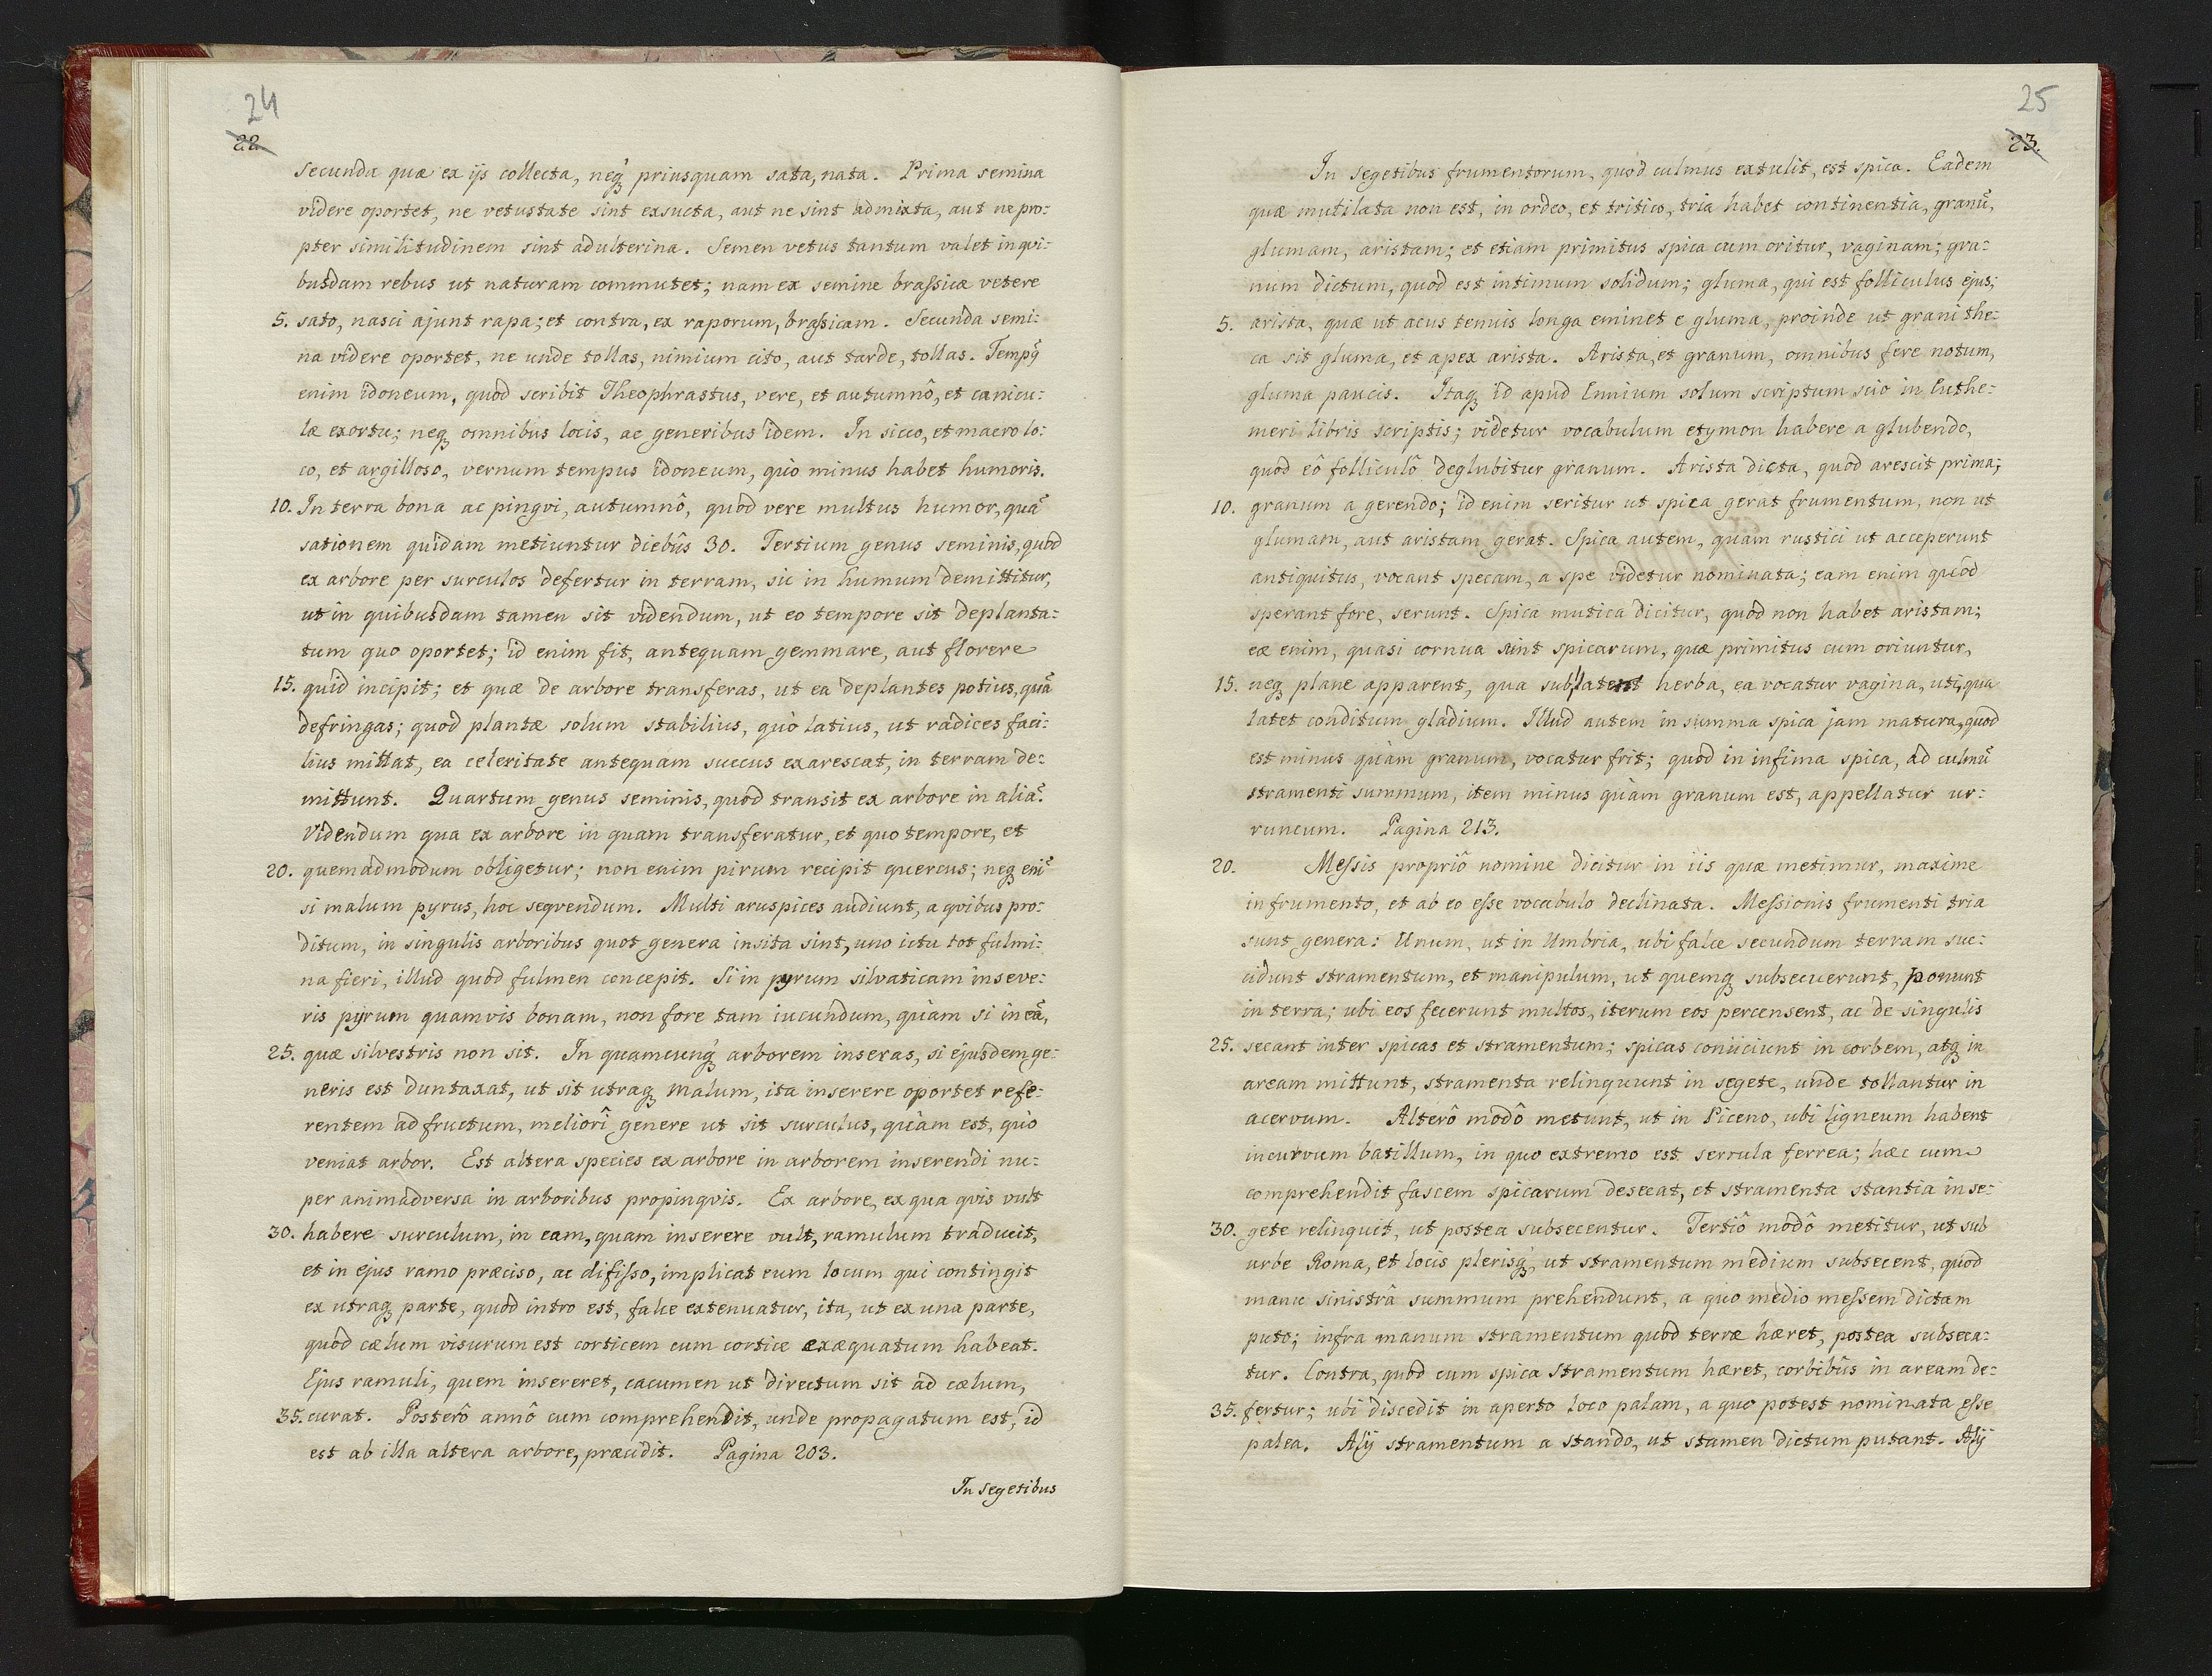 24
22
secunda quæ ex ijs collecta, neq́ꝫ priusquam sata, nata. Prima semina
videre oportet, ne vetustate sint exsucta, aut ne sint admixta, aut ne pro:
pter similitudinem sint adulterina. Semen vetus tantum valet in qvi:
busdam rebus ut naturam commutet; nam ex semine braſsicæ vetere
5. sato, nasci ajunt rapa; et contra, ex raporum, braſsicam. Secunda semi:
na videre oportet, ne unde tollas, nimium cito, aut tarde, tollas. Tempꝰ
enim idoneum, quod scribit Theophrastus, vere, et autumnô, et canicu:
læ exortu; neqꝫ omnibus locis, ac generibus idem. In sicco, et macro lo:
co, et argilloso, vernum tempus idoneum, quò minus habet humoris.
10. In terra bona ac pingvi, autumnô, quòd vere multus humor, quã
sationem quidam metiuntur diebûs 30. Tertium genus seminis, quod
ex arbore per surculos defertur in terram, sic in humum demittitur,
ut in quibusdam tamen sit videndum, ut eo tempore sit deplanta:
tum quo oportet; id enim fit, antequam gemmare, aut florere
15. quid incipit; et quæ de arbore transferas, ut ea deplantes potius, quã
defringas; quod plantæ solum stabilius, quò latius, ut radices faci:
lius mittat, ea celeritate antequam succus exarescat, in terram de:
mittunt. Quartum genus seminis, quod transit ex arbore in aliã.
Videndum qua ex arbore in quam transferatur, et quo tempore, et
20. quemadmodum obligetur; non enim pirum recipit quercus; neqꝫ enĩ
si malum pyrus, hoc seqvendum. Multi aruspices audiunt, a qvibus pro:
ditum, in singulis arboribus quot genera insita sint, uno ictu tot fulmi:
na fieri, illud quod fulmen concepit. Si in pyrum silvaticam inseve:
ris pyrum quamvis bonam, non fore tam iucundum, quàm si in eã,
25. quæ silvestris non sit. In quamcunq́ꝫ arborem inseras, si ejusdem ge:
neris est duntaxat, ut sit utraqꝫ malum, ita inserere oportet refe:
rentem ad fructum, meliorî genere ut sit surculus, quàm est, quò
veniat arbor. Est altera species ex arbore in arborem inserendi nu:
per animadversa in arboribus propinqvis. Ex arbore, ex qua qvis vult
30. habere surculum, in eam, quam inserere vult, ramulum traducit,
et in ejus ramo præciso, ac difiſso, implicat eum locum qui contingit
ex utraqꝫ parte, quod intro est, falce extenuatur, ita, ut ex una parte,
quod cælum visurum est corticem cum cortice exæquatum habeat.
Ejus ramuli, quem insereret, cacumen ut directum sit ad cælum,
35. curat. Posterô annô cum comprehendit, unde propagatum est, id
est ab illa altera arbore, præcidit. Pagina 203.
In segetibus
25
23.
In segetibus frumentorum, quod culmus extulit, est spica. Eadem
quæ mutilata non est, in ordeo, et tritico, tria habet continentia, granũ,
glumam, aristam; et etiam primitus spica cum oritur, vaginam; gra:
num dictum, quod est intimum solidum; gluma, qui est folliculus ejus;
5. arista, quæ ut acus tenuis longa eminet e gluma, proinde ut grani the:
ca sit gluma, et apex arista. Arista, et granum, omnibus fere notum,
gluma paucis. Itaqꝫ id apud Ennium solum scriptum scio in Euthe:
meri libris scriptis; videtur vocabulum etymon habere a glubendo,
quod eô folliculô deglubitur granum. Arista dicta, quod arescit prima;
10. granum a gerendo; id enim seritur ut spica gerat frumentum, non ut
glumam, aut aristam gerat. Spica autem, quam rustici ut acceperunt
antiquitus, vocant specam, a spe videtur nominata; eam enim quod
sperant fore, serunt. Spica mutica dicitur, quod non habet aristam;
eæ enim, quasi cornua sunt spicarum, quæ primitus cum oriuntur,
15. neqꝫ plane apparent, qua sub latent herba, ea vocatur vagina, uti, qua
latet conditum gladium. Illud autem in summa spica jam matura, quod
est minus quàm granum, vocatur frit; quod in infima spica, ad culmũ
stramenti summum, item minus quàm granum est, appellatur ur:
runcum. Pagina 213.
20. Meſsis propriô nomine dicitur in iis quæ metimur, maxime
in frumento, et ab eo eſse vocabulo declinata. Meſsionis frumenti tria
sunt genera: Unum, ut in Umbria, ubi falce secundum terram suc:
cidunt stramentum, et manipulum, ut quemqꝫ subsecuerunt, ponunt
in terra; ubi eos fecerunt multos, iterum eos percensent, ac de singulis
25. secant inter spicas et stramentum; spicas coniiciunt in corbem, atqꝫ in
aream mittunt, stramenta relinquunt in segete, unde tollantur in
acervum. Alterô modô metunt, ut in Piceno, ubi ligneum habent
incurvum batillum, in quo extremo est serrula ferrea; hæc cum
comprehendit fascem spicarum desecat, et stramenta stantia in se:
30. gete relinquit, ut postea subsecentur. Tertiô modô metitur, ut sub
urbe Roma, et locis plerisq́ꝫ, ut stramentum medium subsecent, quod
manu sinistrâ summum prehendunt, a quo medio meſsem dictam
puto; infra manum stramentum quod terræ hæret, postea subseca:
tur. Contra, quod cum spica stramentum hæret, corbibûs in aream de:
35. fertur; ubi discedit in aperto loco palam, a quo potest nominata eſse
palea. Alij stramentum a stando, ut stamen dictum putant. Alij